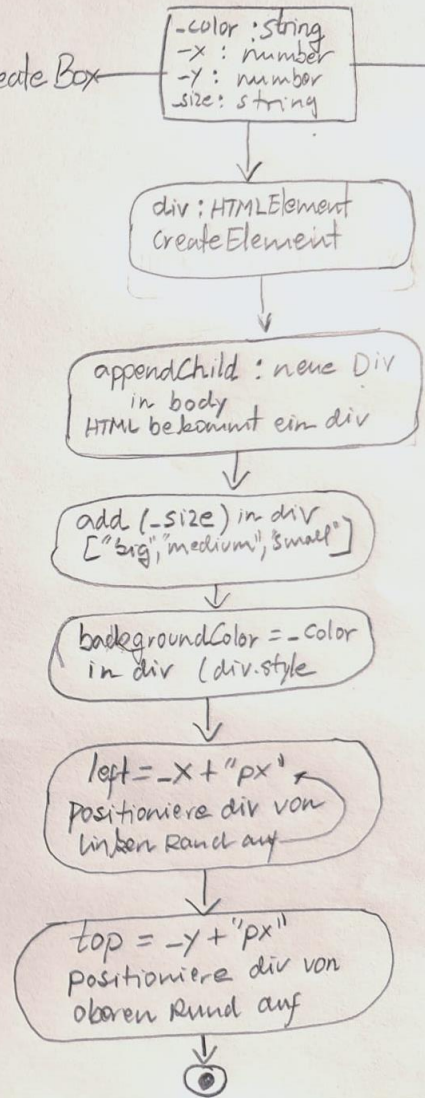 _color : string
-x : number
-y : number
_size : string
eate Box
div : HTMLElement
CreateElement
appendChild : neue Div
in body
HTML bekommt ein div
add (_size) in div
["big", "medium", "small"]
backgroundColor = _color
in div (div.style
left = -x + "px"
positioniere div von
linken Rand auf
top = -y + "px"
positioniere div von
oberen Rand auf